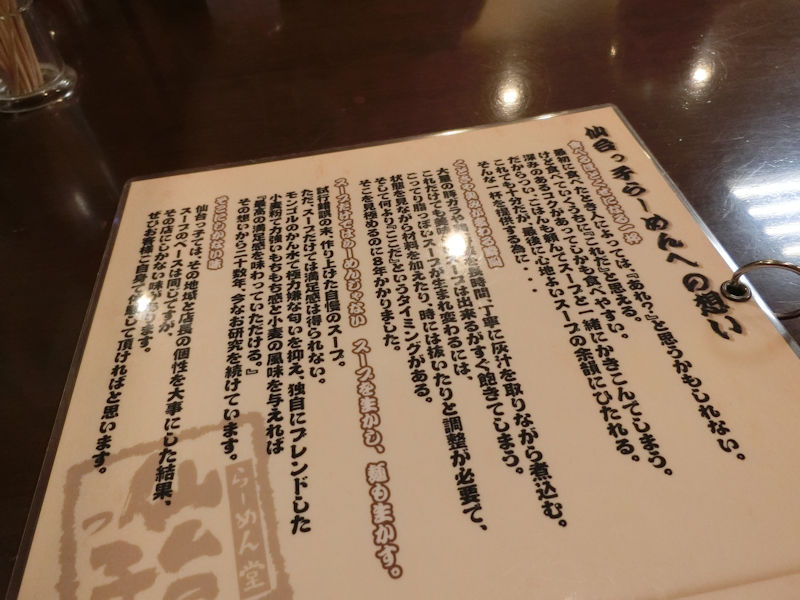 仙台っ子らーめんへの想い
最初に食べたとき人によっては、『あれ?』と思うかもしれない。
けど食べていくうちに『これだ』と思える。
深みのあるコクがあってしかも食べやすい。
だからつい、ごはんも頼んでスープと一緒にかきこんでしまう。
これでも十分だが、最後に心地よいスープの余韻にひたれる。
そんな一杯を提供する為に・・
大量の豚ガラや
長時間、丁寧に灰汁を取りながら煮込む。
これだけでも
スープは出来るがすぐ飽きてしまう。
こってり脂っぽいスープが生まれ変わるには、
状態を見ながら材料を加えたり、時には抜いたりと調整が必要で、
そして何より『ここだ』というタイミングがある。
そこを見極めるのに8年かかりました。
スープだけではらーめんじゃない スープをまかし、麺もまかす。
試行錯誤の末、作り上げた自慢のスープ。
ただ、スープだけでは満足感は得られない。
モンゴルのかん水で極力嫌な匂いを抑え、独自にブレンドした
小麦粉で力強いもちもち感と小麦の風味を与えれば
『最高の満足感を味わっていただける。』
その想いから二十数年、今なお研究を続けています。
そこにしかない味
仙台っ子では、その地域と店長の個性を大事にした結果、
スープのベースは同じですが、
その店にしかない味があります。
ぜひお客様ご自身で体験して頂ければと思います。
らーめん堂
仙台っ子